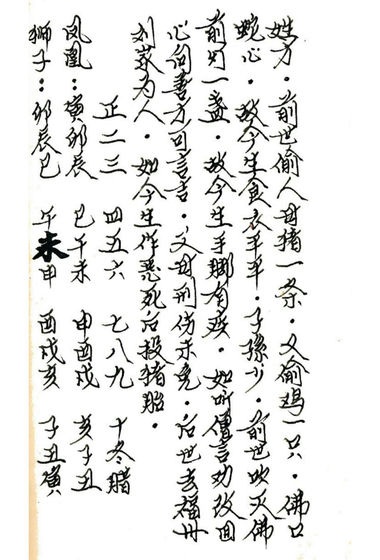 姓方。前世偷人母猪一条。又偷鸡一只。佛口
蛇心。故今生食衣平平。子孫少。前世吹灭佛
前灯一盏。故今生手脚有疾。如听僧言劝改回
心向善方可言吉。父母刑伤未免。后世去福州
刘家为人。如今生作恶死后投猪胎。
正二三 四五六 七八九 十冬腊
凤凰：寅卯辰 巳午未 申酉戌 亥子丑
狮子：卯辰巳 午未申 酉戌亥 子丑寅